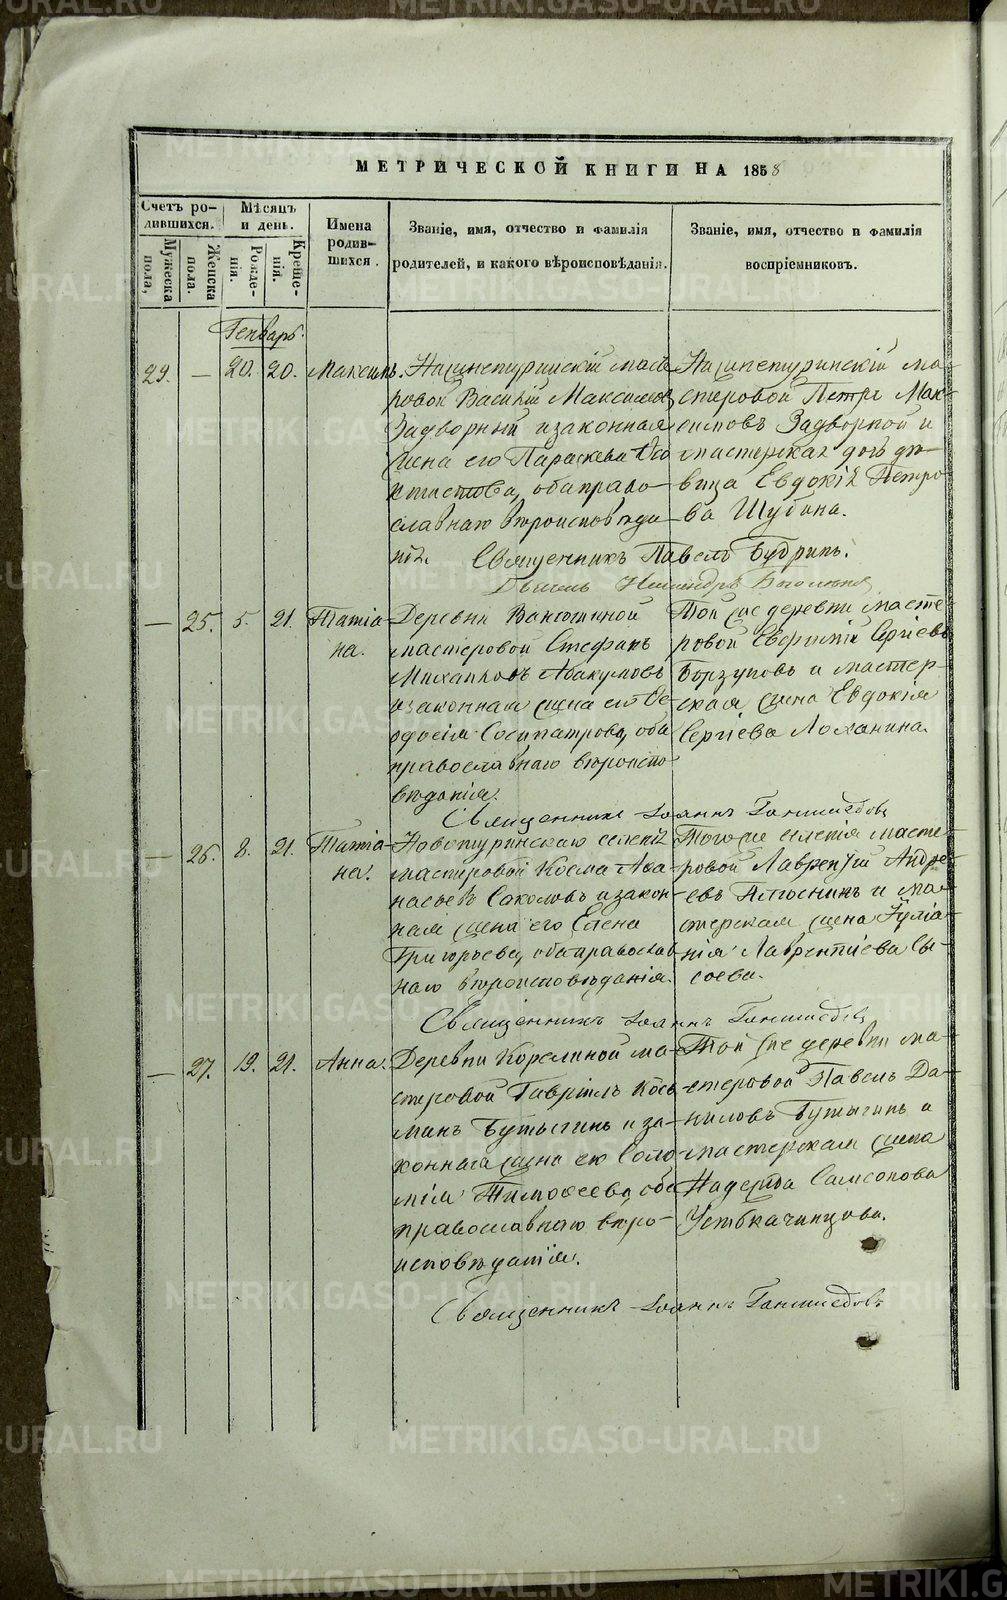 МЕТРИЧЕСКОЙ КНИГИ НА 1858
Счетъ ро-
дившихся.
Мужеска
пола,
Женска
пола.
Мѣсяцъ
и день.
Рожде-
нія.
Креще-
нія.
Имена
родив-
шихся.
Званіе, имя, отчество и фамилія
родителей, и какого вѣроисповѣданія.
Званіе, имя, отчество и фамилія
воспріемниковъ.
Генварь.
29. — 20. 20. Максимъ.
Нашинетуринскій масте-
ровой Василій Максимовъ
Задворный и законная
жена его Параскева
, оба право-
славнаго вѣроисповѣда-
нія.
Нашинетуринскій ма-
стеровой Петръ Мак-
симовъ Задворной и
мастерская дочь дѣ-
вица Евдокія Петро-
ва Шубина.
Священникъ Павелъ Будринъ.
— 25. 5. 21. Татіа-
на.
Деревни
мастеровой Стефанъ
Михайловъ Абакумовъ
и законная жена его Ѳе-
одосія Сосипатрова, оба
православнаго вѣроиспо-
вѣданія.
Той же деревни масте-
ровой Сергіевъ
Борзуновъ и мастер-
ская жена Евдокія
Сергіева Лоханина.
Священникъ Іоаннъ
— 26. 8. 21. Татіа-
на.
Новотуринскаго селенія
мастеровой Косма Аѳа-
насьевъ Соколовъ и закон-
ная жена его Елена
Григорьева, оба православ-
наго вѣроисповѣданія.
Того же селенія масте-
ровой Лаврентій Андре-
евъ и ма-
стерская жена Іуліа-
нія Лаврентіева Сы-
соева.
Священникъ Іоаннъ
— 27. 19. 21. Анна.
Деревни Корелиной ма-
стеровой Гавріилъ Козь-
минъ Бутыгинъ и за-
конная жена его Соло-
мія Тимоѳеева, оба
православнаго вѣро-
исповѣданія.
Той же деревни ма-
стеровой Павелъ Да-
ниловъ Бутыгинъ и
мастерская жена
Надежда Самсонова
Усть-Качинцова.
Священникъ Іоаннъ
METRIKI.GASO-URAL.RU